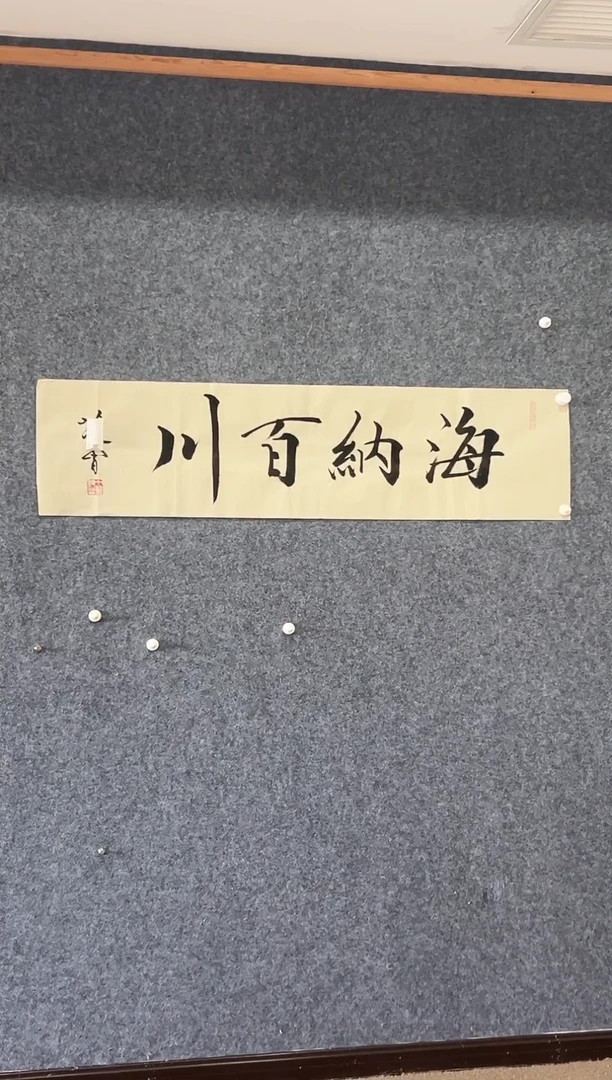 海納百川